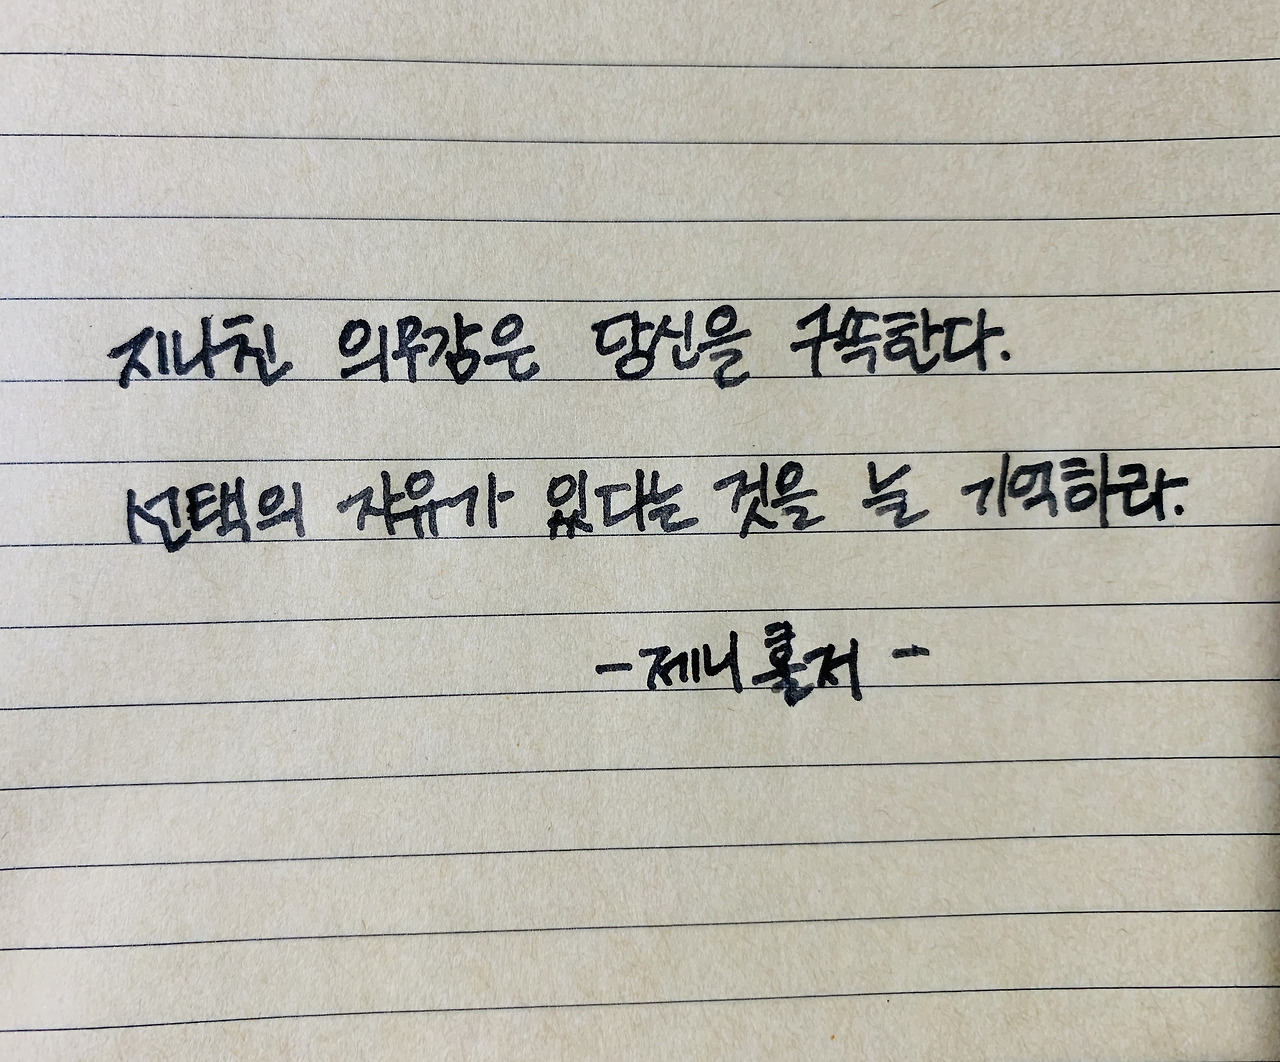 지나친 의무감은 당신을 구속한다.
선택의 자유가 있다는 것을 늘 기억하라.
- 제니 홀저 -